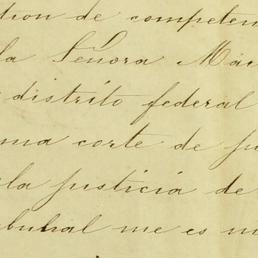 tion de competen
la Señora Mar
distrito federal
ma corte de ju
la justicia de
bunal me es m